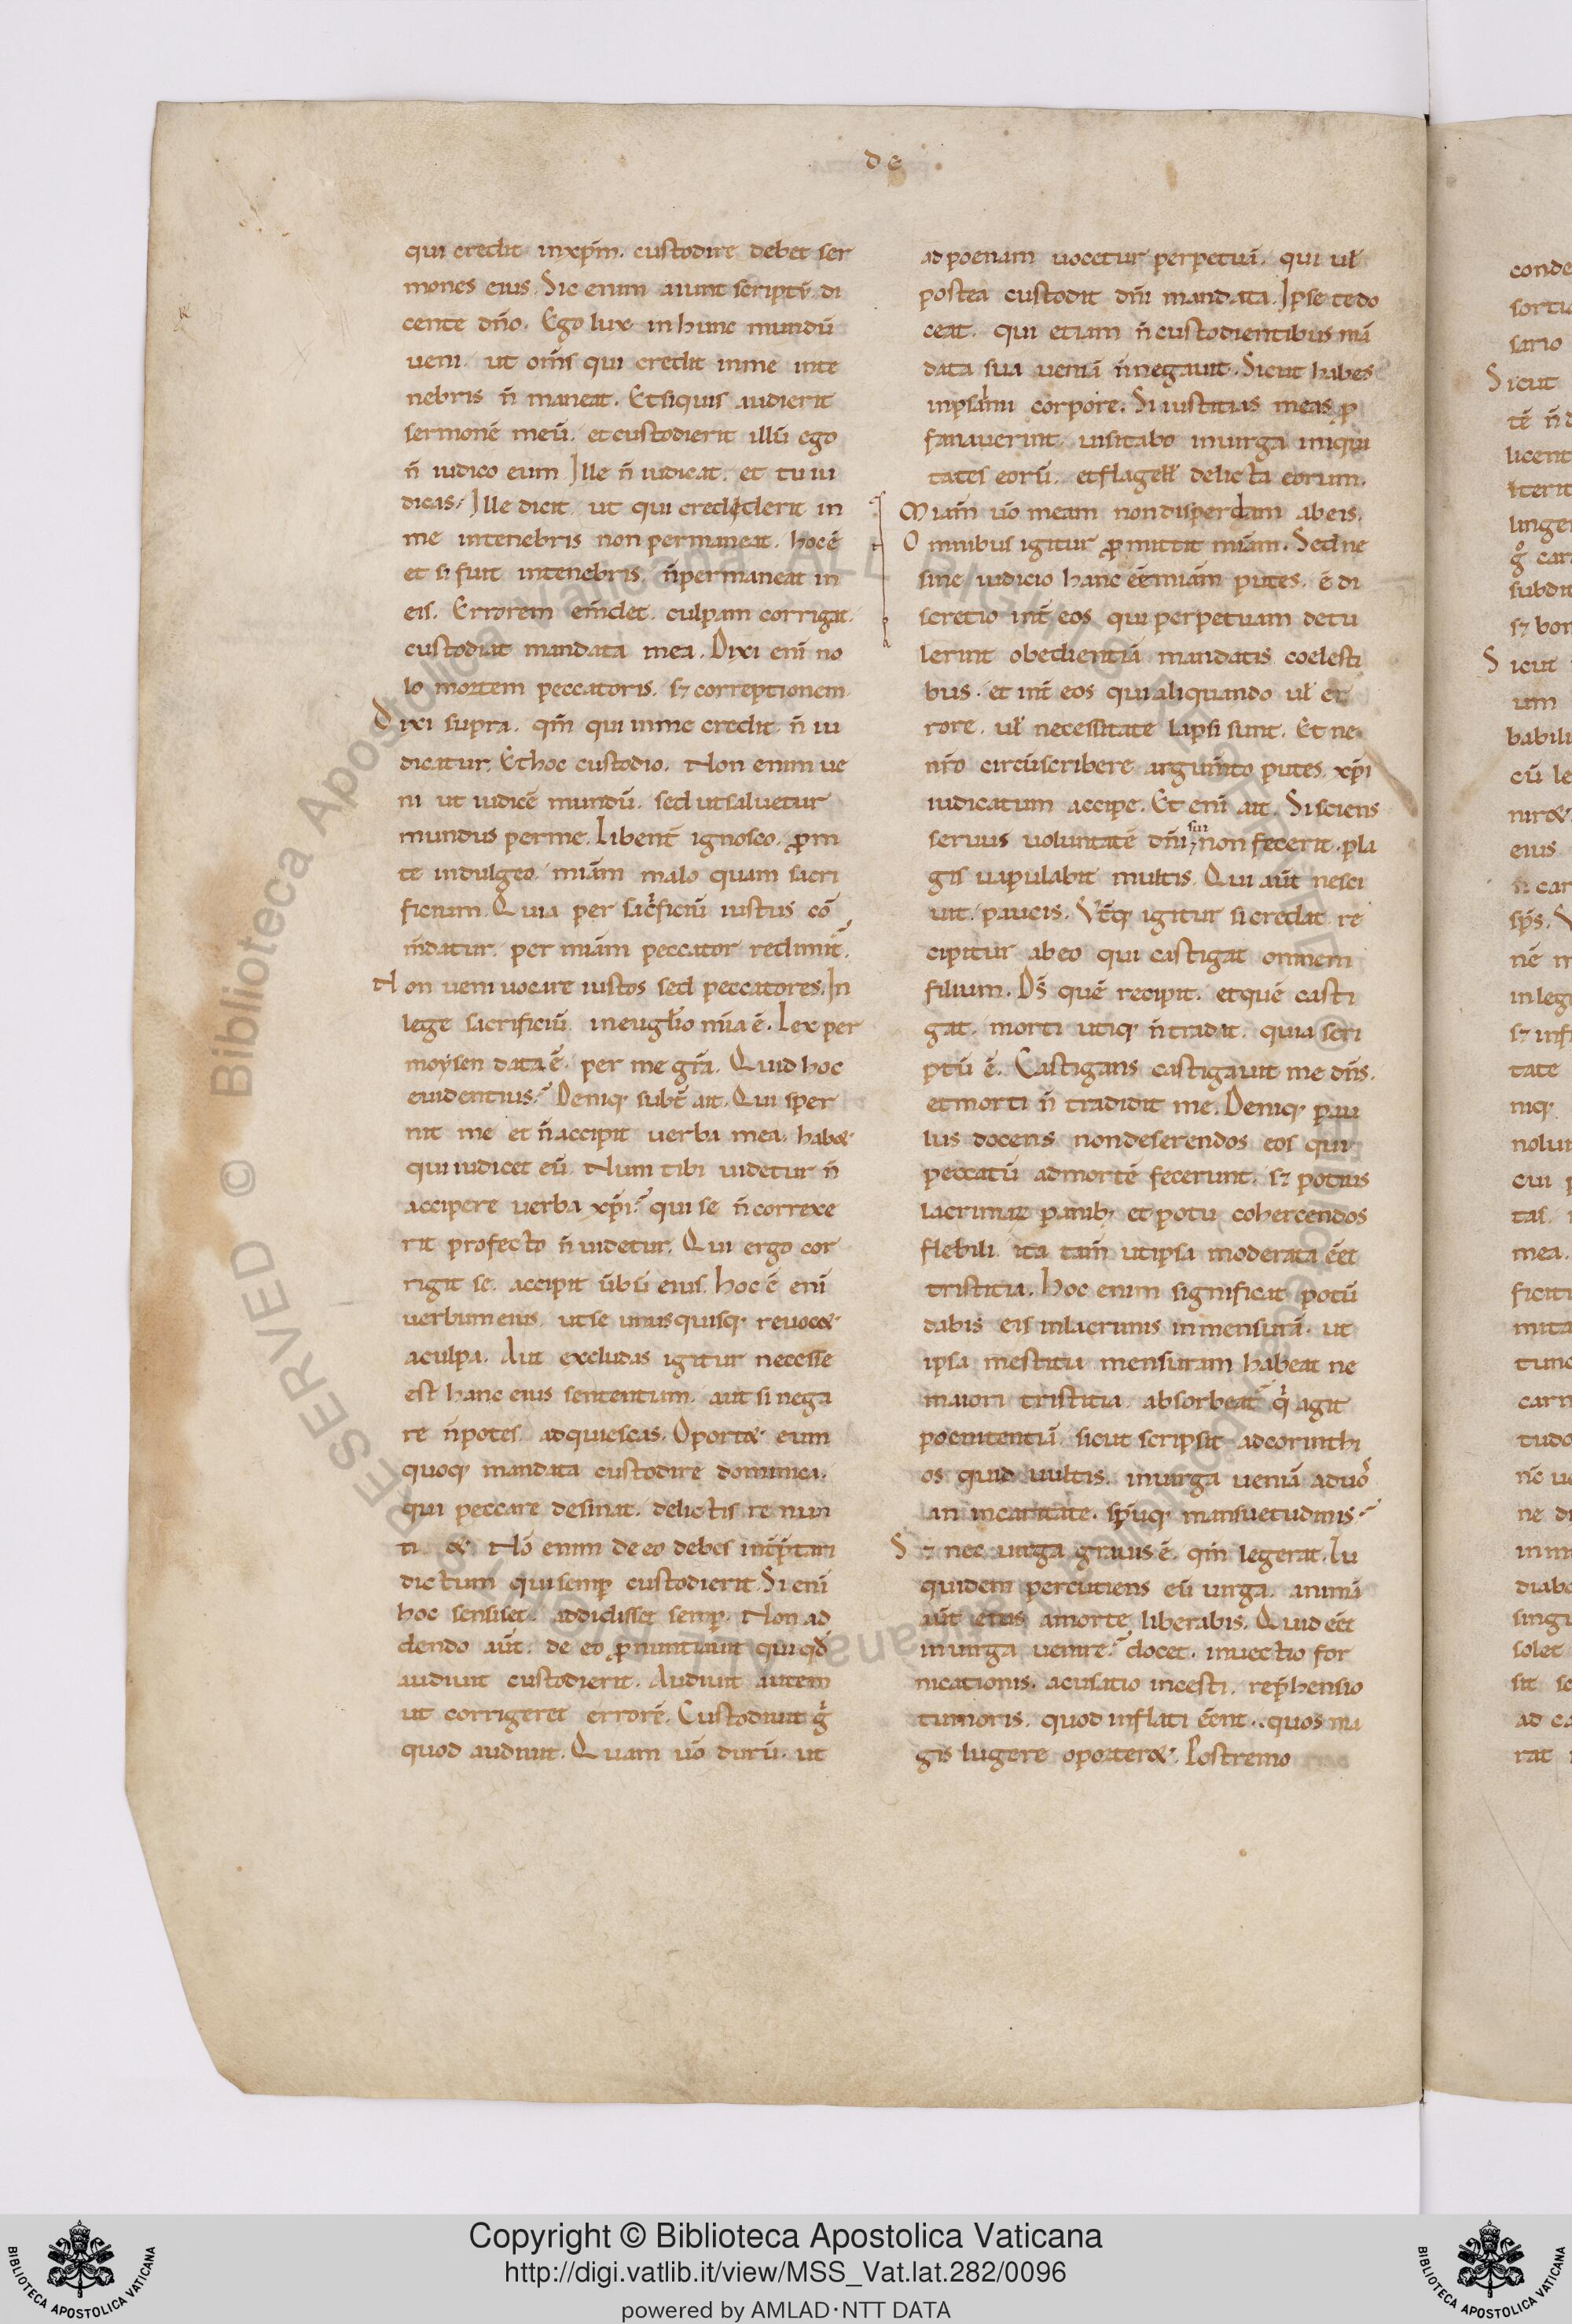 de
qui credit inxpm̄. custodire debet ser
mones eius. Sic enim aiunt scriptū di
cente dn̄o. Ego lux in hunc mundū
ueni. ut om̄s qui credit inme inte
nebris n̄ maneat. Etsiquis audierit
sermonē meū. etcustodierit illū ego
n̄ iudico eum. Ille n̄ iudicat. et tu iu
dicas; Ille dicit ut qui crediderit in
me intenebris non permaneat. hocē
et si fuit intenebris n̄permaneat in
eis. Errorem em̄det. culpam corrigat.
custodiat mandata mea. Dixi enī no
lo mortem peccatoris. sꝫ correptionem
Dixi supra. qm̄ qui inme credit. n̄ iu
dicatur. Ethoc custodio. Non enim ue
ni ut iudicē mundū. sed utsaluetur
mundus perme. Libent̄ ignosco. ꝓm
te indulgeo. miām malo quam sacri
ficium. Quia per sacͥficiū iustus cō
m̄datur. per miām peccator redimit̄.
Non ueni uocare iustos sed peccatores. In
lege sacrificiū. ineuglīo mīa ē. Lex per
moysen data ē. per me gr̄a. Quid hoc
euidentius? Deniqꝫ subt̄ ait. Qui sper
nit me et n̄accipit uerba mea. habꝫ
qui iudicet eū. Num tibi uidetur n̄
accipere uerba xp̄i? qui se n̄correxe
rit profecto n̄ uidetur. Qui ergo cor
rigit se. accipit ūbū eius. hoc ē enī
uerbum eius. utse unusquisqꝫ reuocꝫ
aculpa. Aut excludas igitur necesse
est hanc eius sententiam. aut si nega
re n̄potes. adquiescas. Oportꝫ eum
quoqꝫ mandata custodire dominica.
qui peccare desinat. delictis re nun
ti & Nō enim de eo debes int̄p̄tari
dictum qui semꝑ custodierit. Si enī
hoc sensiset. addidisset semꝑ. Non ad
dendo aūt. de eo ꝓnuntiauit qui qd̄
audiuit custodierit. Audiuit autem
ut corrigeret errorē. Custodiuit gͥ
quod audiuit. Quam uō durū. ut
adpoenam uocetur perpetuā. qui uł
postea custodit dn̄i mandata. Ipse tedo
ceat. qui etiam n̄custodientibus mā
data sua ueniā n̄negauit. Sicut habes
inpsalmi corpore. Si iustitias meas ꝓ
fanauerint. uisitabo inuirga iniqui
tates eorū. etflagell̄ delicta eorum.
Miām uō meam nondisperdam abeis.
Omnibus igitur ꝓmittit miām. Sed ne
sine iudicio hanc eēmiām putes. ē di
scretio int̄ eos qui perpetuam detu
lerint obedientiā mandatis coelesti
bus. et int̄ eos qui aliquando uł er
rore. uł necessitate lapsi sunt. Et ne
nr̄o circūscribere argum̄to putes. xp̄i
iudicatum accipe. Et enī ait. Si sciens
seruus uoluntatē dn̄i sui non fecerit. pla
gis uapulabit multis. Qui aūt nesci
uit. paucis. Vt̄qꝫ igitur sicredat. re
cipitur abeo qui castigat omnem
filium. Dś quē recipit. etquē casti
gat. morti utiqꝫ n̄tradit. quia scri
ptū ē. Castigans castigauit me dn̄s.
etmorti n̄ tradidit me. Deniqꝫ pau
lus docens nondeserendos eos qui
peccatū admortē fecerunt. sꝫ potius
lacrimaꝝ panibꝫ et potu cohercendos
flebili. ita tam̄ utipsa moderata eēt
tristitia. Hoc enim significat potū
dabis eis inlacrimis inmensurā. ut
ipsa mestitia mensuram habeat ne
maiori tristitia absorbeat̄ qͥ agit
poenitentiā. sicut scripsit adcorinthi
os quid uultis. inuirga ueniā aduoͬ
an incaritate. sp̄uqꝫ mansuetudinis?
Sꝫ nec uirga grauis ē. qm̄ legerat. Tu
quidem percutiens eū uirga. animā
aūt eius amorte liberabis. Quid eēt
inuirga uenire? docet. inuectio for
nicationis. acusatio incesti. rep̄hensio
tumoris. quod inflati eēnt. quos ma
gis lugere oporterꝫ. Postremo
conde
sario
Sicut
licent
lingen
subdit
Sicut
um
babili
cū le
eius
inlegi
tate
niqꝫ
nolun
mea.
ficiti
mita
tunc
carn
tudo
ne di
diabo
singu
solet
ad ca
rat
Copyright © Biblioteca Apostolica Vaticana
http://digi.vatlib.it/view/MSS_Vat.lat.282/0096
powered by AMLAD·NTT DATA
BIBLIOTECA APOSTOLICA VATICANA
BIBLIOTECA APOSTOLICA VATICANA